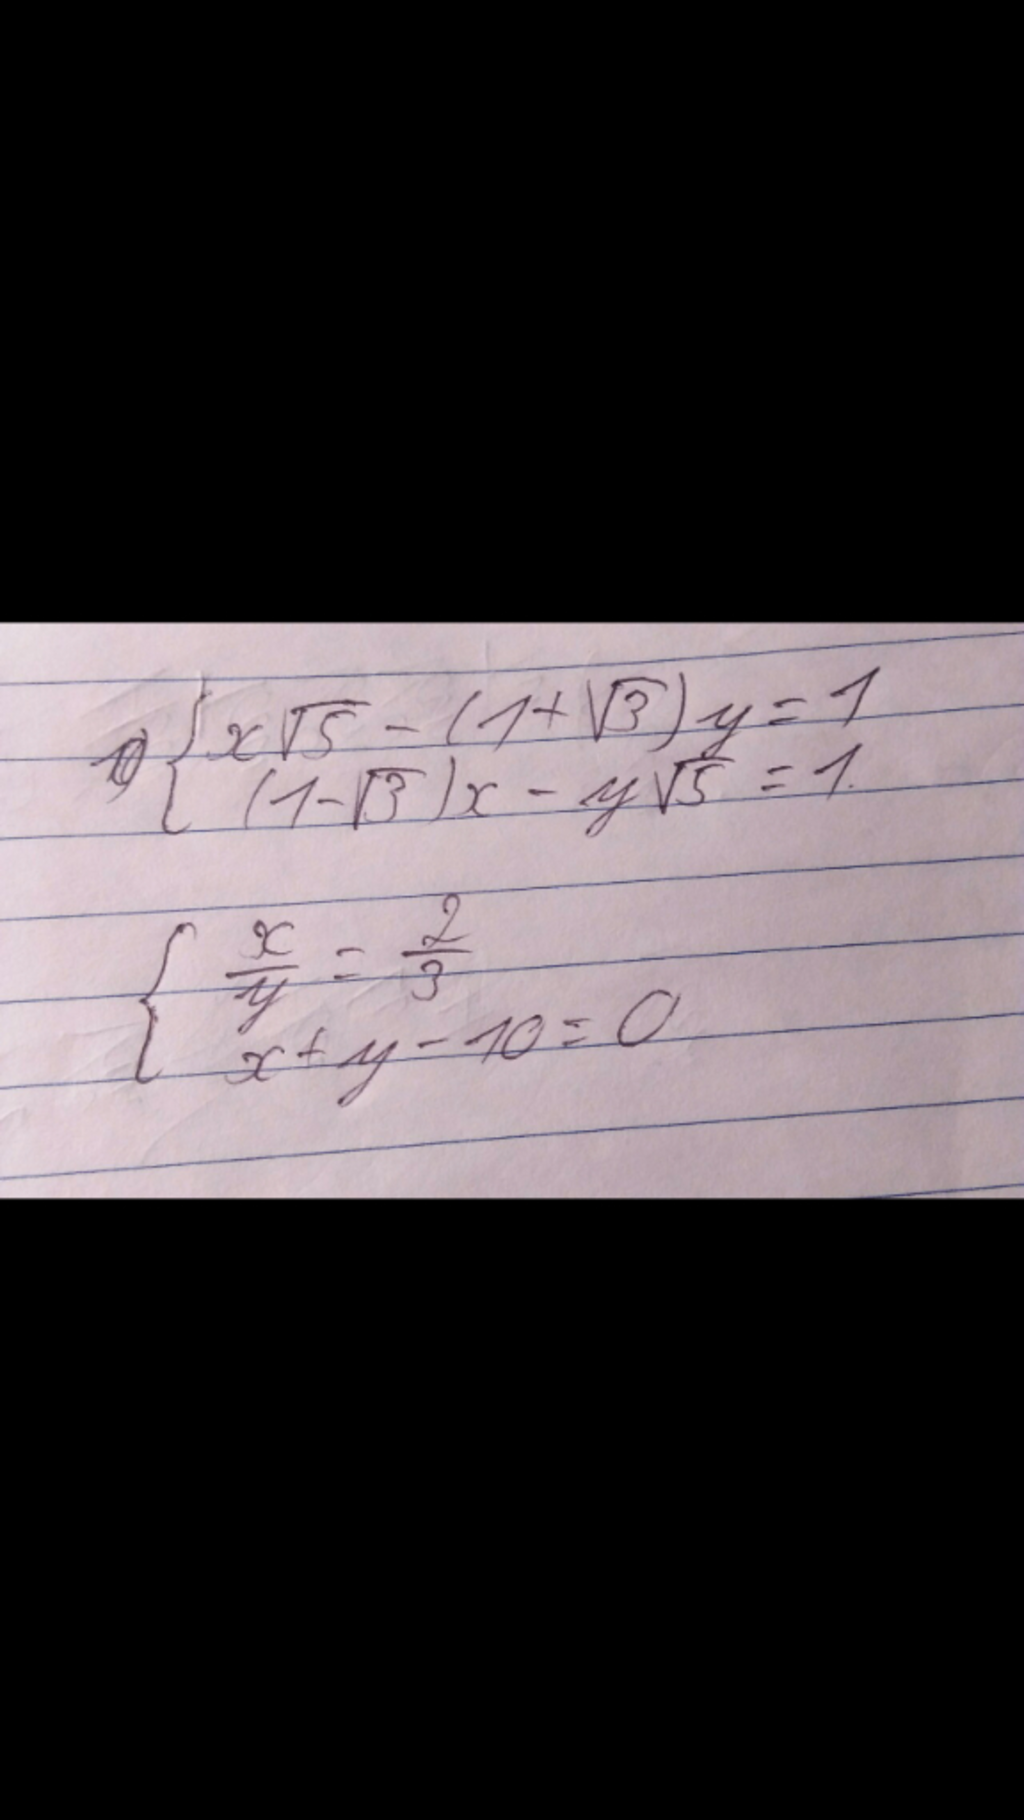 { x√5 - (1+√3)y = 1
(1-√3)x - y√5 = 1.
{ x/y = 2/3
x+y-10=0